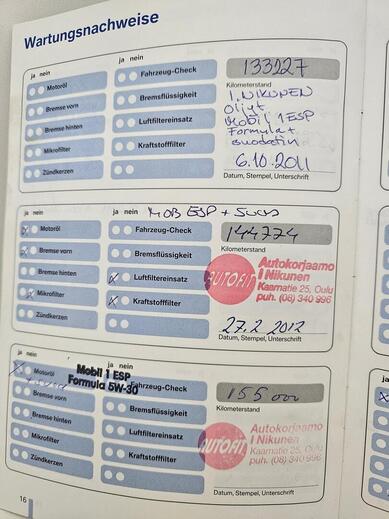 Wartungsnachweise
ja nein
ja nein
Motoröl
Fahrzeug-Check
133227
Kilometerstand
Bremse vorn
Bremsflüssigkeit
I. NIKUNEN
Öljyt
Bremse hinten
Luftfiltereinsatz
Mobil 1 ESP
Formula +
Mikrofilter
Kraftstofffilter
suodatin
Zündkerzen
6.10.2011
Datum, Stempel, Unterschrift
ja nein
ja nein
MOB ESP + Suod
Motoröl
Fahrzeug-Check
144774
Kilometerstand
Bremse vorn
Bremsflüssigkeit
Bremse hinten
Luftfiltereinsatz
AUTOFIT
Autokorjaamo
I Nikunen
Kaarnatie 25, Oulu
puh. (08) 340 996
Mikrofilter
Kraftstofffilter
Zündkerzen
27.2 2012
Datum, Stempel, Unterschrift
ja nein
ja nein
Motoröl
Mobil 1 ESP
Formula 5W-30
Fahrzeug-Check
155000
Kilometerstand
Bremse vorn
Bremsflüssigkeit
Bremse hinten
Luftfiltereinsatz
AUTOFIT
Autokorjaamo
I Nikunen
Kaarnatie 25, Oulu
puh. (08) 340 996
Mikrofilter
Kraftstofffilter
Zündkerzen
Datum, Stempel, Unterschrift
16